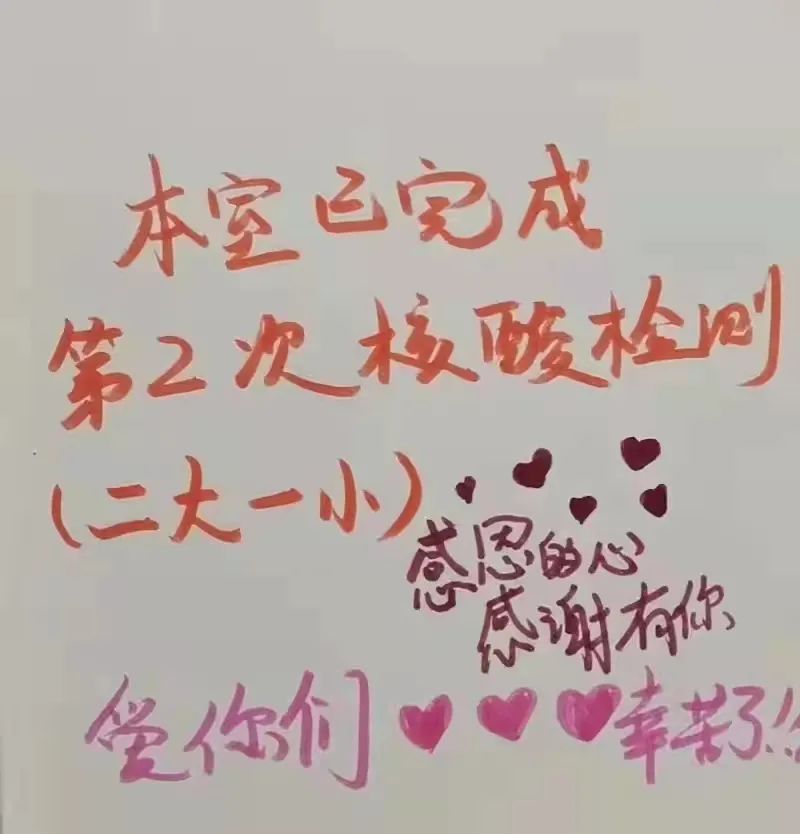 本室已完成
第2次核酸检测
(二大一小)
感恩的心
感谢有你
爱你们 幸苦了